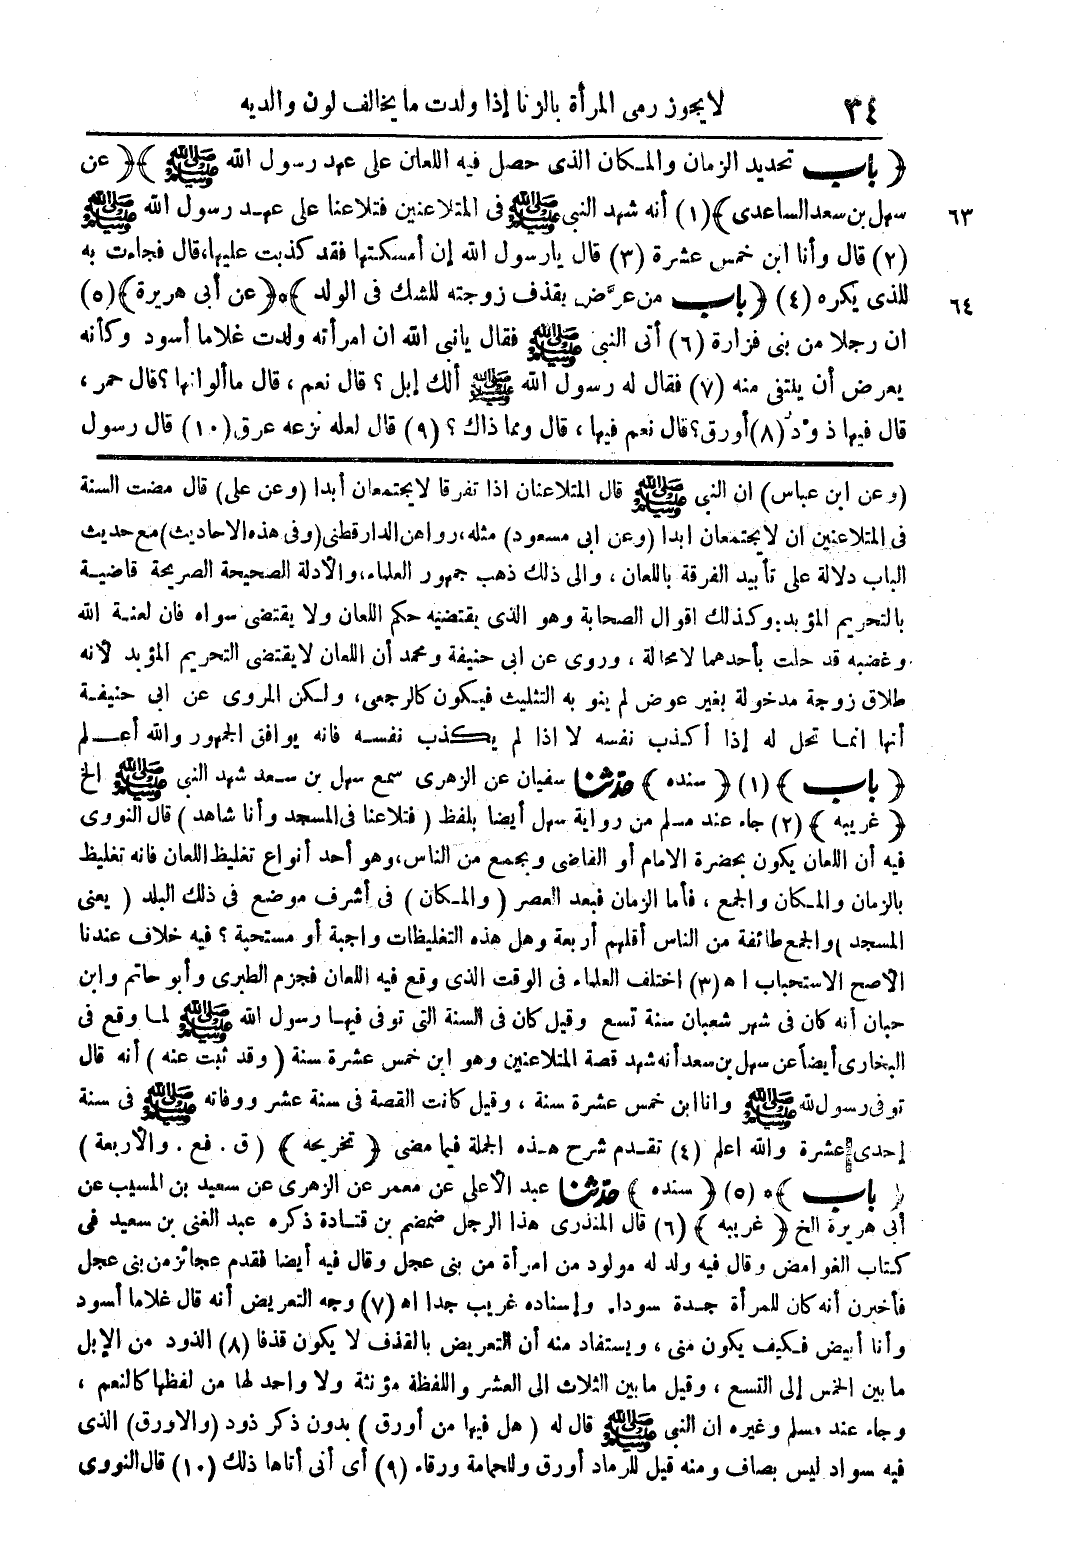 ٣٤ لا يجوز رمى المرأة بالزنا إذا ولدت ما يخالف لون والديه
﴿ باب تحديد الزمان والمكان الذى حصل فيه اللعان على عهد رسول الله ﷺ ﴾ ﴿ عن
٦٣ سهل بن سعد الساعدى ﴾ (١) أنه شهد النبى ﷺ فى المتلاعنين فتلاعنا على عهد رسول الله ﷺ
(٢) قال وأنا ابن خمس عشرة (٣) قال يارسول الله إن أمسكتها فقد كذبت عليها، قال فجاءت به
٦٤ للذى يكره (٤) ﴿ باب من عرَّض بقذف زوجته للشك فى الولد ﴾ * ﴿ عن أبى هريرة ﴾ (٥)
ان رجلا من بنى فزارة (٦) أتى النبى ﷺ فقال يانبى الله ان امرأته ولدت غلاما أسود وكأنه
يعرض أن ينتفى منه (٧) فقال له رسول الله ﷺ ألك إبل ؟ قال نعم ، قال ما ألوانها ؟ قال حمر ،
قال فيها ذود (٨) أورق؟ قال نعم فيها ، قال ومما ذاك ؟ (٩) قال لعله نزعه عرق (١٠) قال رسول
(وعن ابن عباس) ان النبى ﷺ قال المتلاعنان اذا تفرقا لا يجتمعان أبدا (وعن على) قال مضت السنة
فى المتلاعنين ان لا يجتمعان ابدا (وعن ابى مسعود) مثله، رواهن الدارقطنى (وفى هذه الاحاديث) مع حديث
الباب دلالة على تأبيد الفرقة باللعان ، والى ذلك ذهب جمهور العلماء، والأدلة الصحيحة الصريحة قاضية
بالتحريم المؤبد: وكذلك اقوال الصحابة وهو الذى يقتضيه حكم اللعان ولا يقتضى سواه فان لعنة الله
وغضبه قد حلت بأحدهما لا محالة ، وروى عن ابى حنيفة ومحمد أن اللعان لا يقتضى التحريم المؤبد لأنه
طلاق زوجة مدخولة بغير عوض لم ينو به التثليث فيكون كالرجعى، ولكن المروى عن ابى حنيفة
أنها انما تحل له إذا أكذب نفسه لا اذا لم يكذب نفسه فانه يوافق الجمهور والله أعلم
﴿ باب ﴾ (١) ﴿ سنده ﴾ حدثنا سفيان عن الزهرى سمع سهل بن سعد شهد النبى ﷺ الخ
﴿ غريبه ﴾ (٢) جاء عند مسلم من رواية سهل أيضا بلفظ ( فتلاعنا فى المسجد وأنا شاهد ) قال النووى
فيه أن اللعان يكون بحضرة الامام أو القاضى وبجمع من الناس، وهو أحد أنواع تغليظ اللعان فانه تغليظ
بالزمان والمكان والجمع ، فأما الزمان فبعد العصر ( والمكان ) فى أشرف موضع فى ذلك البلد ( يعنى
المسجد ) والجمع طائفة من الناس أقلهم أربعة وهل هذه التغليظات واجبة أو مستحبة ؟ فيه خلاف عندنا
الأصح الاستحباب اه (٣) اختلف العلماء فى الوقت الذى وقع فيه اللعان فجزم الطبرى وأبو حاتم وابن
حبان أنه كان فى شهر شعبان سنة تسع وقيل كان فى السنة التى توفى فيها رسول الله ﷺ لما وقع فى
البخارى أيضاً عن سهل بن سعد أنه شهد قصة المتلاعنين وهو ابن خمس عشرة سنة ( وقد ثبت عنه ) أنه قال
توفى رسول لله ﷺ وانا ابن خمس عشرة سنة ، وقيل كانت القصة فى سنة عشر ووفاته ﷺ فى سنة
إحدى عشرة والله اعلم (٤) تقدم شرح هذه الجملة فيما مضى ﴿ تخريجه ﴾ (ق . فع . والأربعة )
﴿ باب ﴾ * (٥) ﴿ سنده ﴾ حدثنا عبد الأعلى عن معمر عن الزهرى عن سعيد بن المسيب عن
أبى هريرة الخ ﴿ غريبه ﴾ (٦) قال المنذرى هذا الرجل ضمضم بن قتادة ذكره عبد الغنى بن سعيد فى
كتاب الغوامض وقال فيه ولد له مولود من امرأة من بنى عجل وقال فيه أيضا فقدم عجائز من بنى عجل
فأخبرن أنه كان للمرأة جدة سوداء وإسناده غريب جدا اه (٧) وجه التعريض أنه قال غلاما أسود
وأنا أبيض فكيف يكون منى ، ويستفاد منه أن التعريض بالقذف لا يكون قذفا (٨) الذود من الإبل
ما بين الخمس إلى التسع ، وقيل ما بين الثلاث الى العشر واللفظة مؤنثة ولا واحد لها من لفظها كالنعم ،
وجاء عند مسلم وغيره ان النبى ﷺ قال له ( هل فيها من أورق ) بدون ذكر ذود (والاورق) الذى
فيه سواد ليس بصاف ومنه قيل للرماد أورق وللحمامة ورقاء (٩) أى أنى أتاها ذلك (١٠) قال النووى